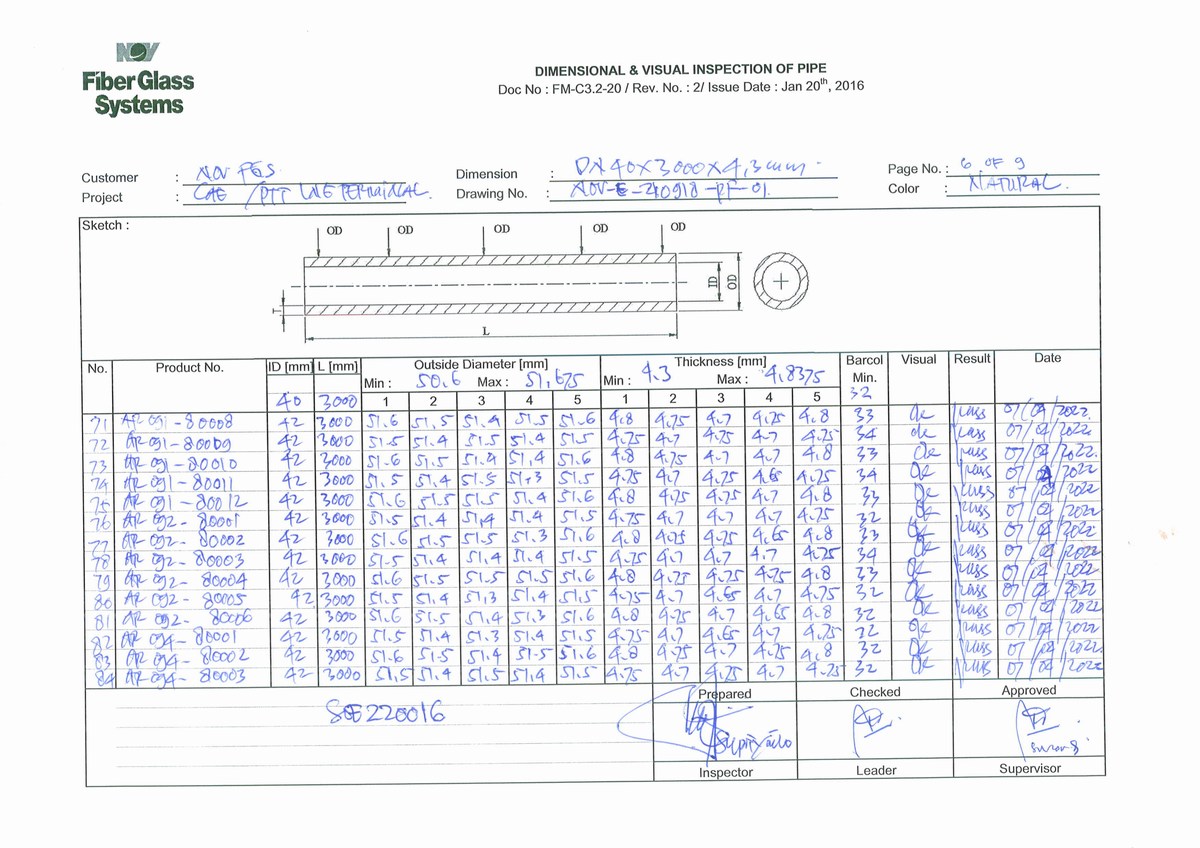 NOV
FiberGlass
Systems
DIMENSIONAL & VISUAL INSPECTION OF PIPE
Doc No : FM-C3.2-20 / Rev. No. : 2/ Issue Date : Jan 20th, 2016
Customer : NOV FGS Dimension : DN40X3000X4,3mm. Page No. : 6 OF 9
Project : /PTT LNG TERMINAL. Drawing No. : Color : NATURAL.
Sketch :
OD OD OD OD OD
ID OD
T
L
No. Product No. ID [mm] L [mm] Outside Diameter [mm] Thickness [mm] Barcol Visual Result Date
Min : 50,6 Max : 51,675 Min : 4.3 Max : 4,8375 Min.
40 3000 1 2 3 4 5 1 2 3 4 5 32
71 AR 091-80008 42 3000 51.6 51,5 51.4 51.5 51.6 4.8 4.75 4.7 4.75 4.8 33 ok pass 07/04/2022
72 AR 091-80009 42 3000 51.5 51.4 51.5 51.4 51.5 4.75 4.7 4.75 4.7 4.75 34 ok pass 07/04/2022
73 AR 091-80010 42 3000 51.6 51.5 51.4 51,4 51.6 4.8 4.75 4.7 4.7 4.8 33 ok pass 07/04/2022.
74 AR 091-80011 42 3000 51.5 51.4 51.5 51.3 51.5 4.75 4.7 4.75 4.65 4.75 34 ok pass 07/04/2022
75 AR 091-80012 42 3000 51.6 51.5 51.5 51.4 51.6 4.8 4.75 4.75 4.7 4.8 33 ok pass 07/04/2022
76 AR 092-80001 42 3000 51.5 51.4 51,4 51.4 51.5 4.75 4.7 4.7 4.7 4.75 32 ok pass 07/04/2022
77 AR 092-80002 42 3000 51.6 51.5 51.5 51.3 51.6 4.8 4.75 4.75 4.65 4.8 33 ok pass 07/04/2022.
78 AR 092-80003 42 3000 51.5 51.4 51,4 51.4 51.5 4.75 4.7 4.7 4.7 4.75 34 ok pass 07/04/2022
79 AR 092-80004 42 3000 51.6 51.5 51.5 51.5 51.6 4.8 4.75 4.75 4.75 4.8 33 ok pass 07/04/2022
80 AR 092-80005 42 3000 51.5 51.4 51,3 51.4 51.5 4.75 4.7 4.65 4.7 4.75 32 ok pass 07/04/2022
81 AR 092-80006 42 3000 51.6 51.5 51.4 51.3 51.6 4.8 4.75 4.7 4.65 4.8 32 ok pass 07/04/2022
82 AR 094-80001 42 3000 51.5 51.4 51.3 51.4 51.5 4.75 4.7 4.65 4.7 4.75 32 ok pass 07/04/2022
83 AR 094-80002 42 3000 51.6 51.5 51.4 51.5 51.6 4.8 4.75 4.7 4.75 4.8 32 ok pass 07/04/2022.
84 AR 094-80003 42 3000 51.5 51.4 51.5 51.4 51.5 4.75 4.7 4.75 4.7 4.75 32 ok pass 07/04/2022
Prepared Checked Approved
Inspector Leader Supervisor